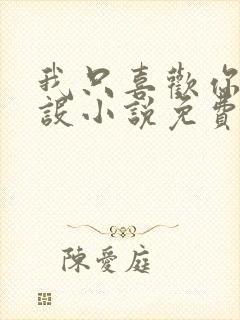 我只喜歡你
設小說免費
陳愛庭